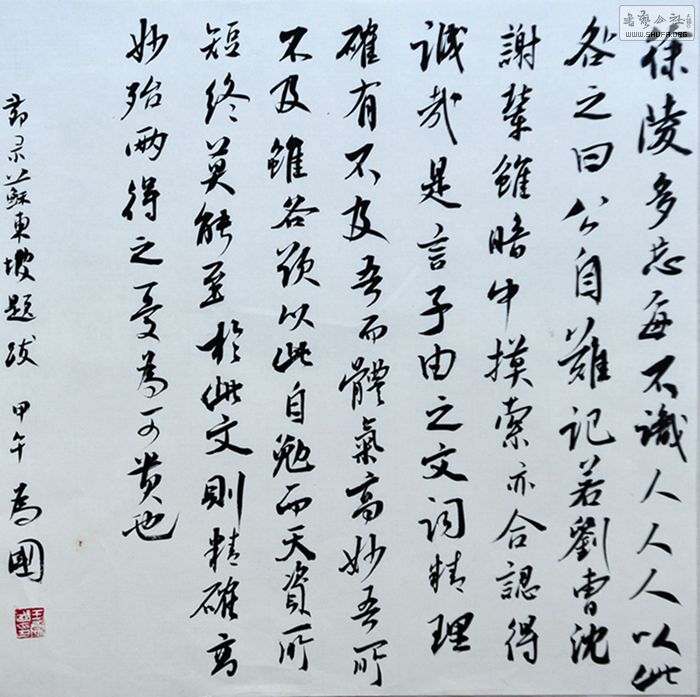 徐陵多忘每不識人人人以此
咎之曰公自難記若劉曹沈
謝輩雖暗中摸索亦合認得
誠哉是言子由之文詞精理
確有不及吾而體氣高妙吾所
不及雖各欲以此自勉而天資所
短終莫能至於此文則精確高
妙殆兩得之憂為可貴也
節录蘇東坡題跋 甲午 為國
書藝公社
WWW.SHUFA.ORG